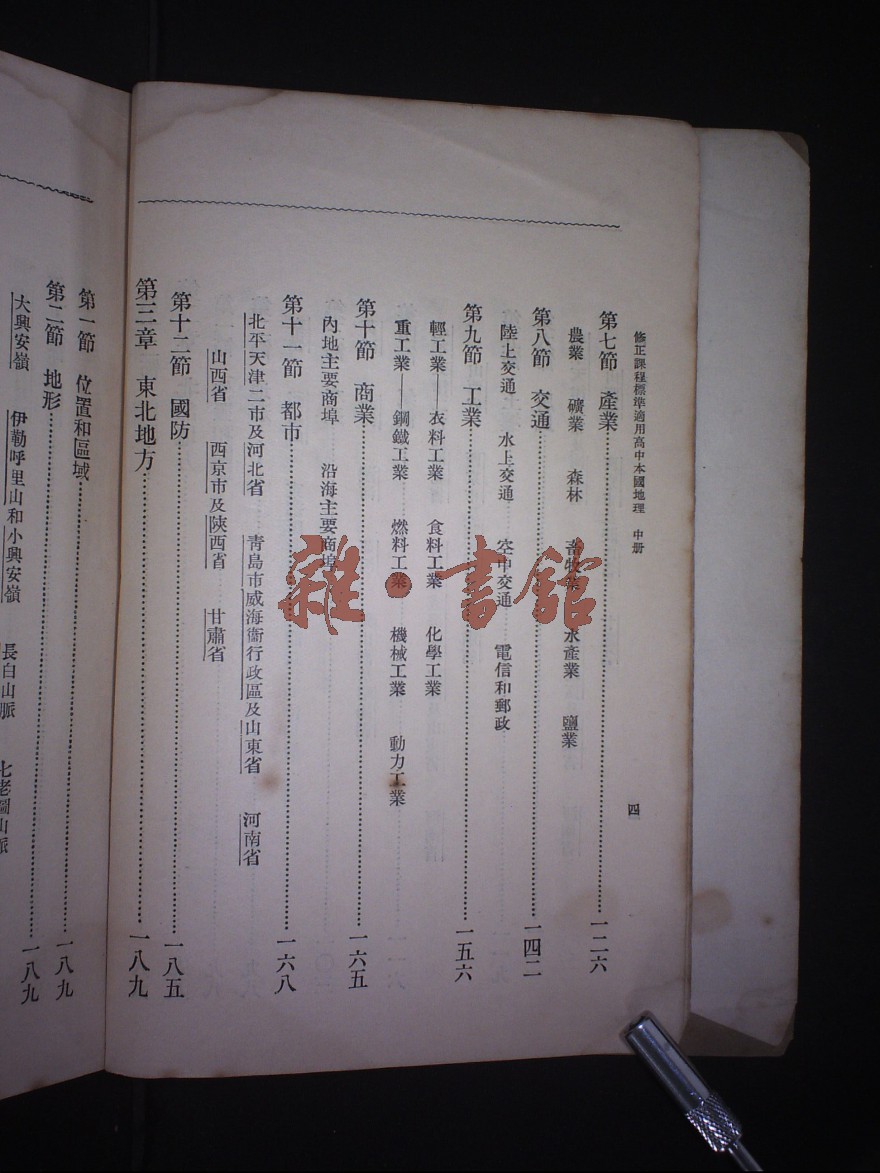 修正課程標準適用高中本國地理　中册
四
第七節　產業……一二六
農業　礦業　森林　畜牧業　水產業　鹽業
第八節　交通……一四二
陸上交通　水上交通　空中交通　電信和郵政
第九節　工業……一五六
輕工業——衣料工業　食料工業　化學工業
重工業——鋼鐵工業　燃料工業　機械工業　動力工業
第十節　商業……一六五
內地主要商埠　沿海主要商埠
第十一節　都市……一六八
北平天津二市及河北省　青島市威海衞行政區及山東省　河南省
山西省　西京市及陝西省　甘肅省
第十二節　國防……一八五
第三章　東北地方……一八九
第一節　位置和區域……一八九
第二節　地形……一八九
大興安嶺　伊勒呼里山和小興安嶺　長白山脈　七老圖山脈
雜·書館